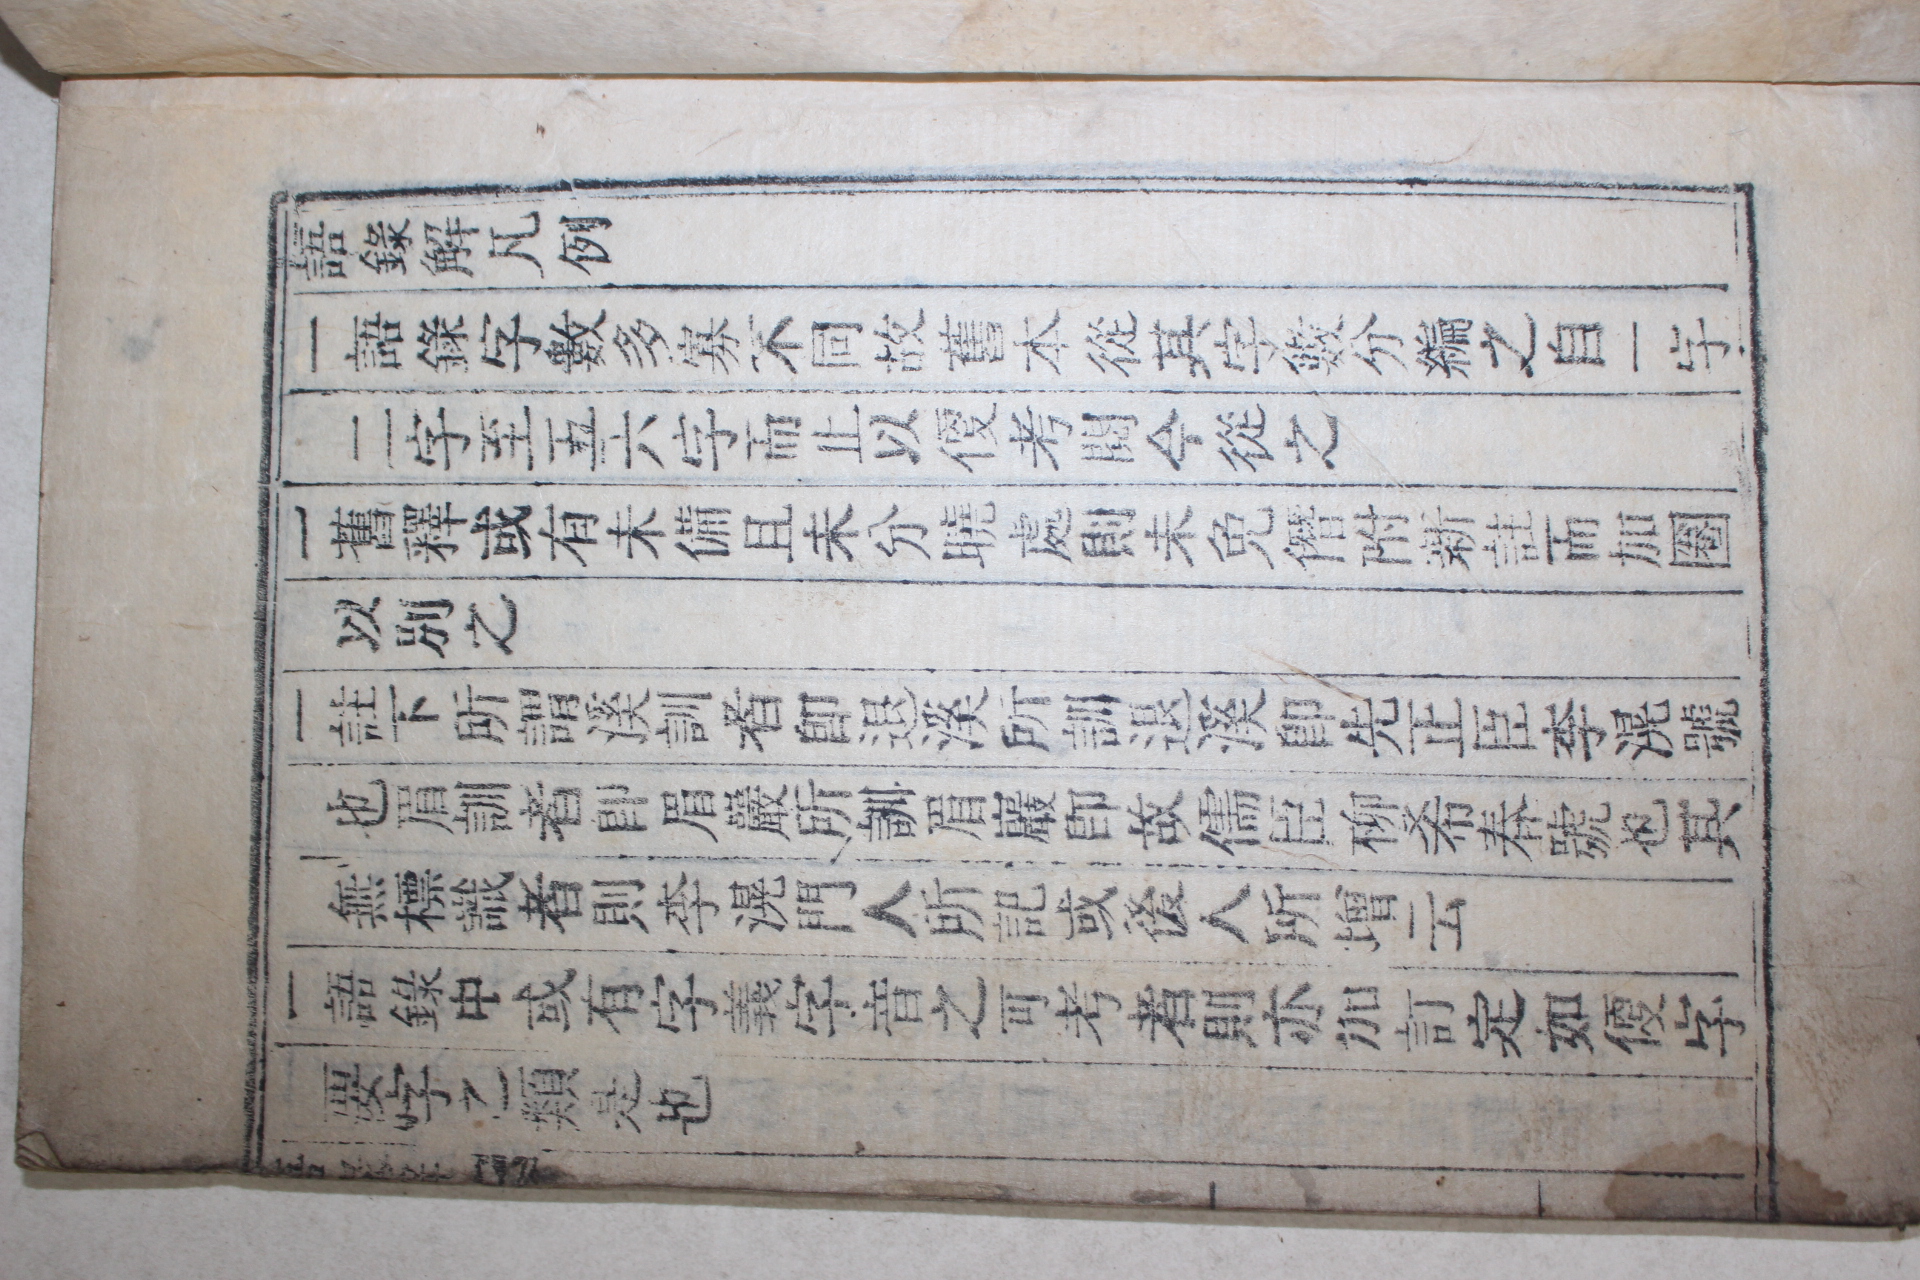 語錄解凡例
一語錄字數多寡不同故舊本從其字數分編之自一字
二字至五六字而止以便考閱今從之
一舊釋或有未備且未分曉處則未免僭附新註而加圈
以別之
一註下所謂溪訓者卽退溪所訓退溪卽先正臣李滉號
也眉訓者卽眉巖所訓眉巖卽故儒臣柳希春號也其
無標識者則李滉門人所記或後人所增云
一語錄中或有字義字音之可考者則亦加訂定如便字
要字之類是也